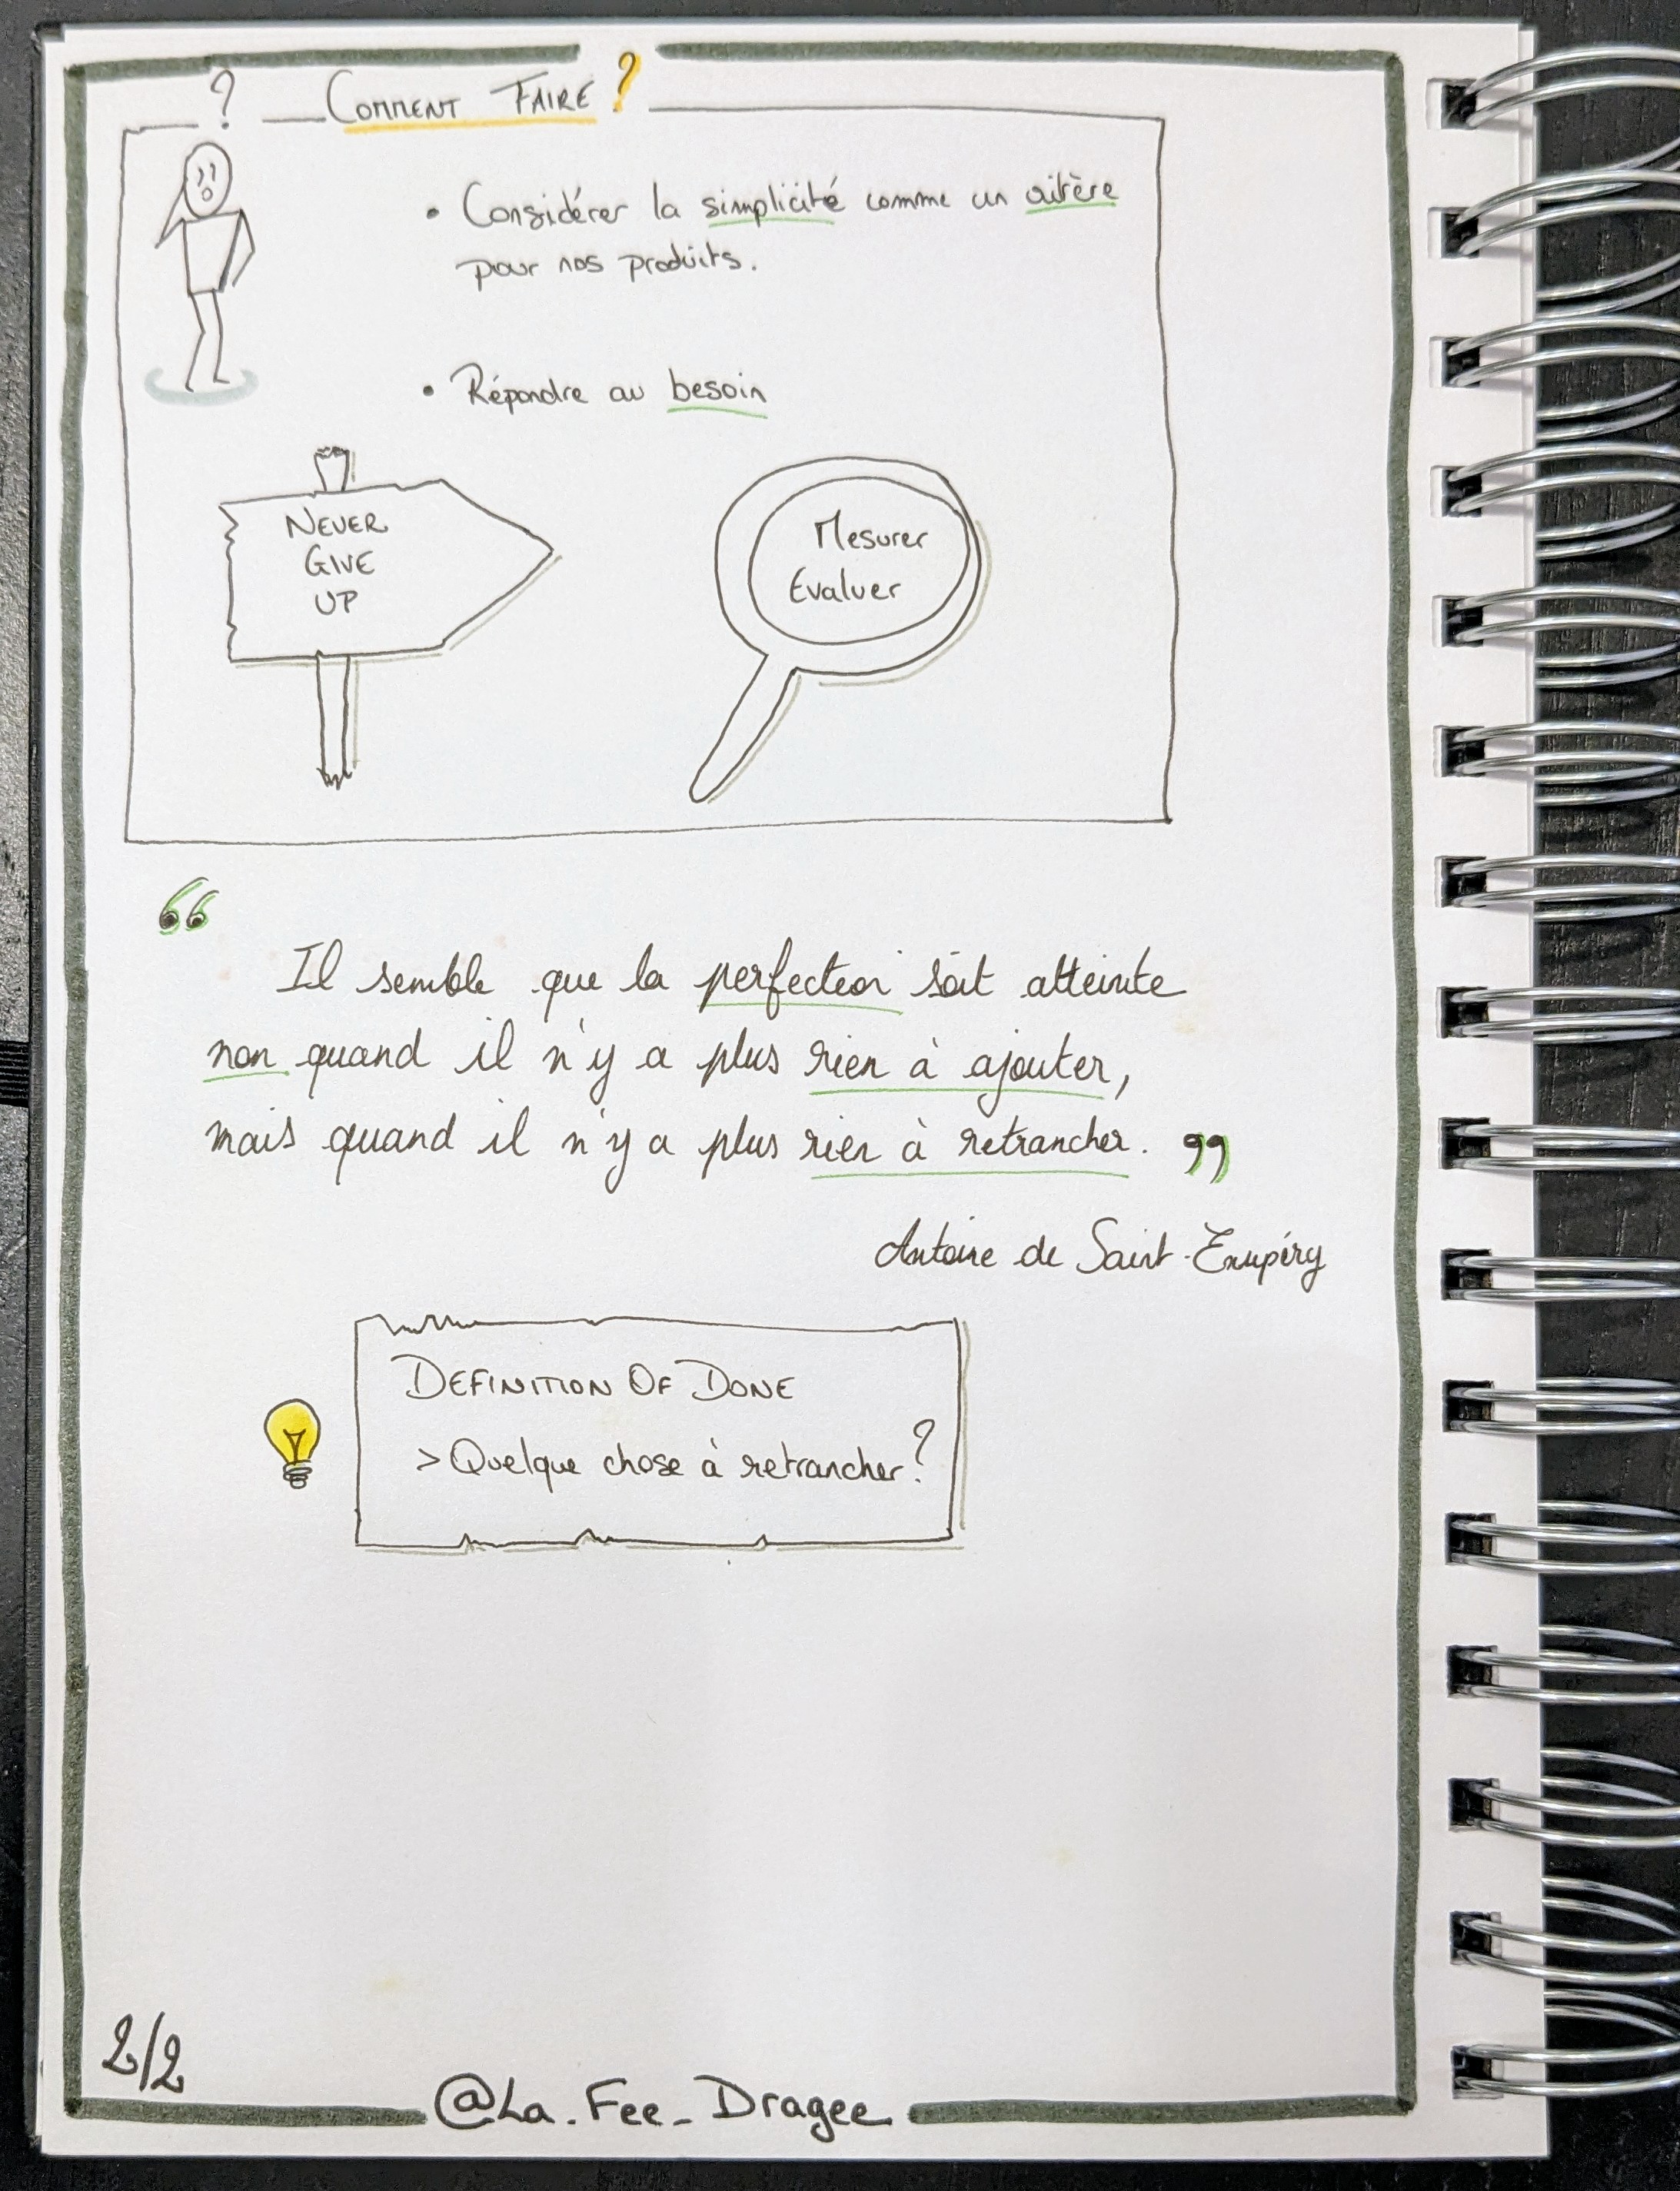 ? COMMENT FAIRE ?
• Considérer la simplicité comme un critère
pour nos produits.
• Répondre au besoin
NEVER
GIVE
UP
Mesurer
Evaluer
“
Il semble que la perfection soit atteinte
non quand il n'y a plus rien à ajouter,
mais quand il n'y a plus rien à retrancher. ”
Antoine de Saint-Exupéry
DEFINITION OF DONE
> Quelque chose à retrancher ?
2/2
@La_Fee_Dragee